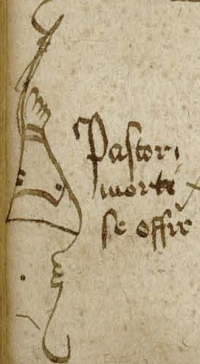 Pastori
morti
se offir